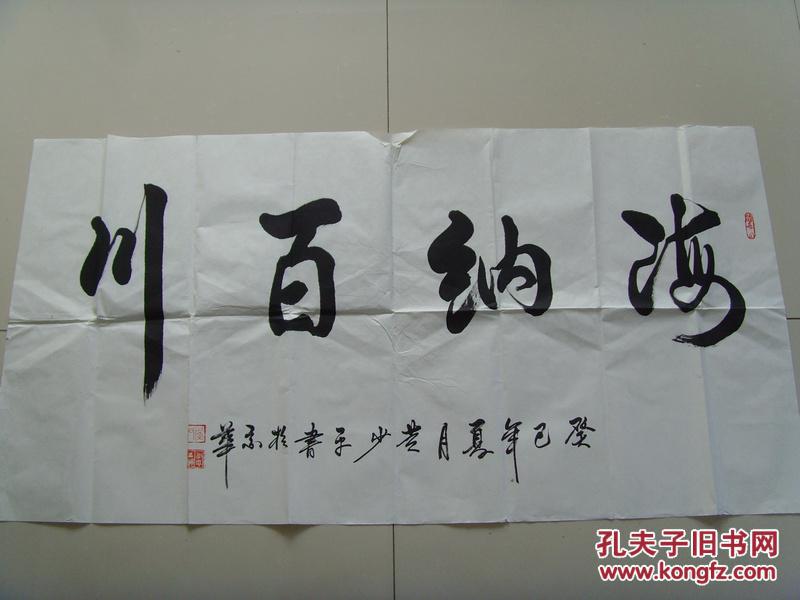 海纳百川
癸巳年夏月黄少平書於京華
孔夫子旧书网
www.kongfz.com